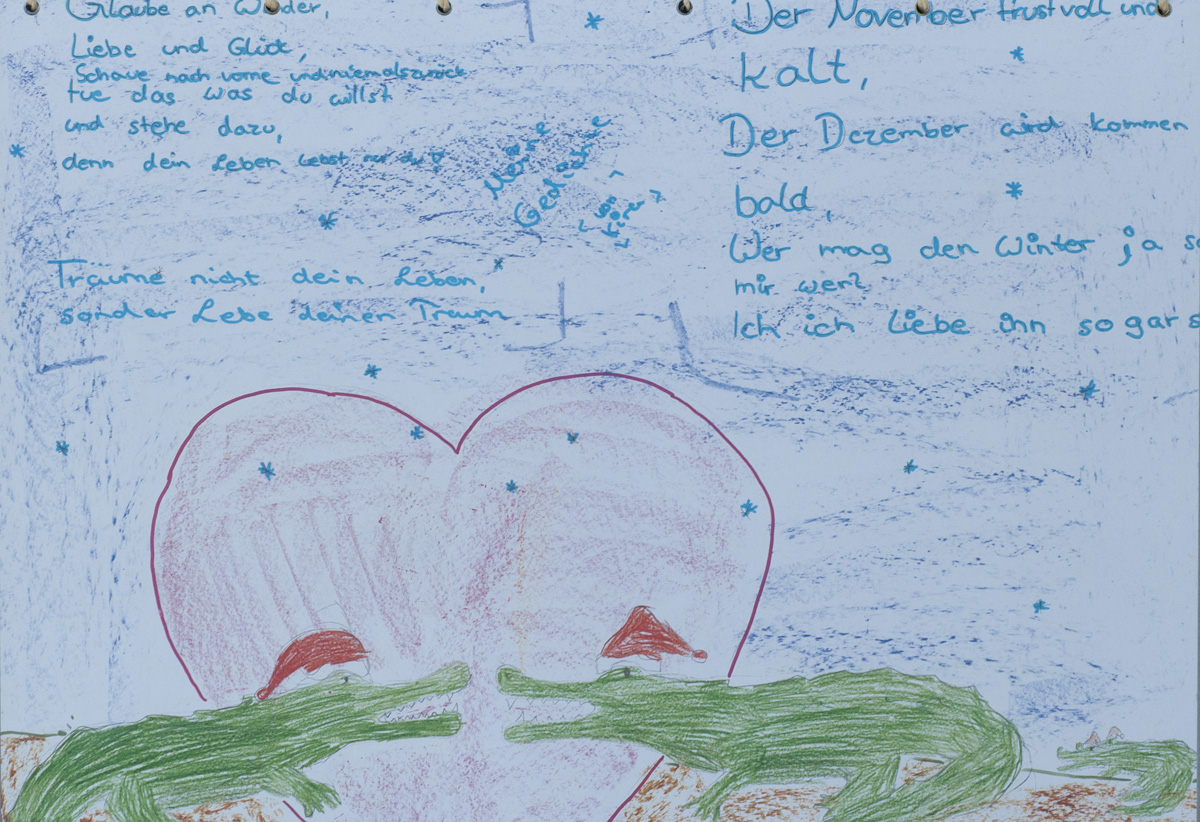 Glaube an Wunder,
Liebe und Glück,
Schaue nach vorne und niemals zurück
tue das was du willst
und stehe dazu,
denn dein Leben lebst nur du
Träume nicht dein Leben,
sonder Lebe deinen Traum
Meine
Gedichte
Der November trustvoll und
kalt,
Der Dezember wird kommen
bald,
Wer mag den Winter ja s
mir wer?
Ich ich Liebe ihn sogar s